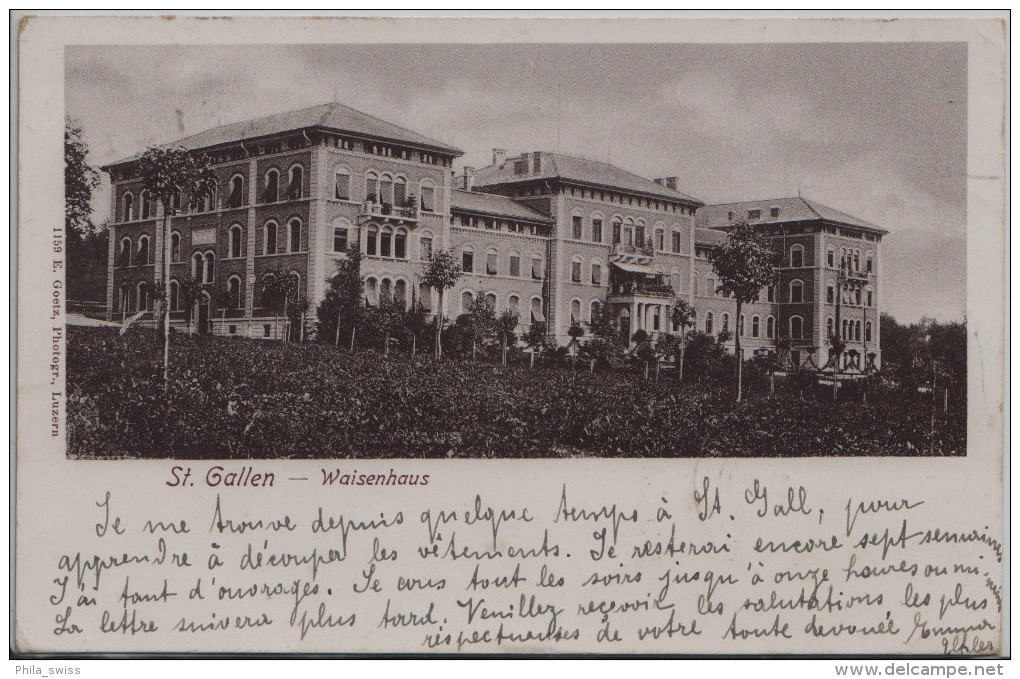 1159 E. Goetz, Photogr., Luzern
St. Gallen — Waisenhaus
Je me trouve depuis quelque temps à St. Gall, pour
apprendre à découper les vêtements. Je resterai encore sept semaines
J'ai tant d'ouvrages. Je cous tout les soirs jusqu'à onze heures ou mi-
nuit
La lettre suivera plus tard. Veuillez recevoir les salutations les plus
respectueuses de votre toute devouée Emma
Phila_swiss
www.delcampe.net